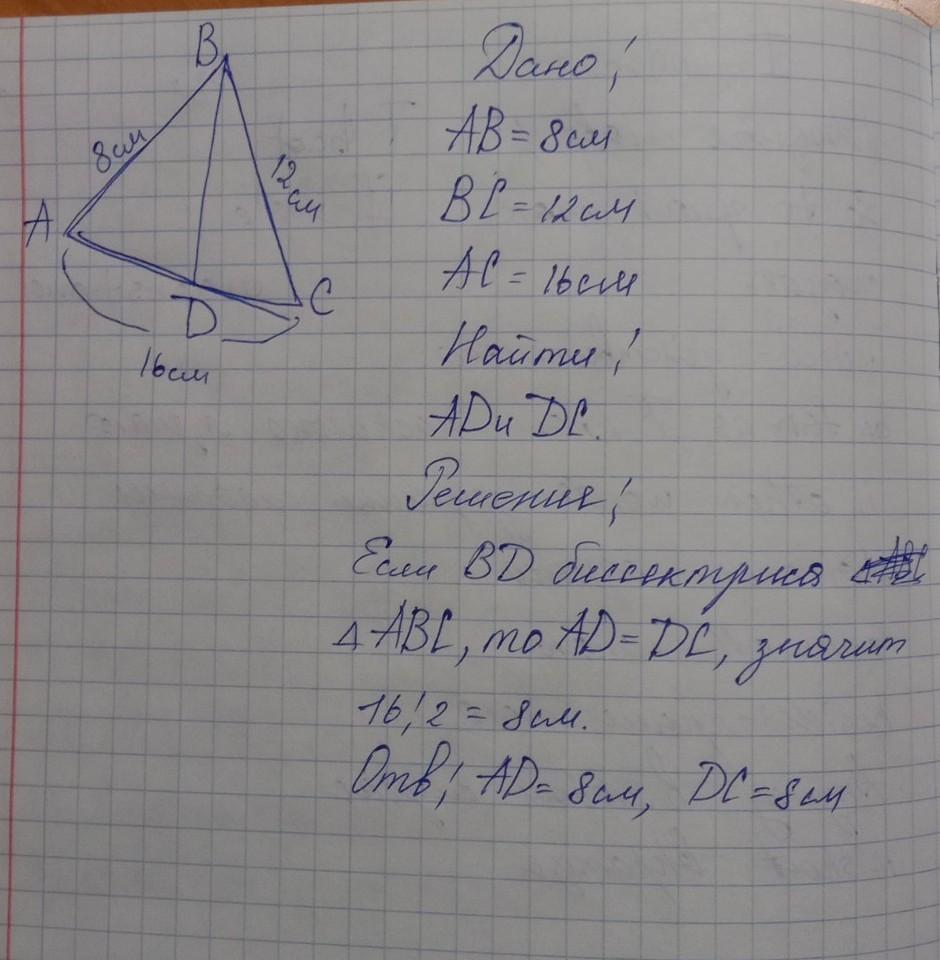 B
8см
12см
A
D
C
16см
Дано:
AB = 8см
BC = 12см
AC = 16см
Найти:
AD и DC.
Решения:
Если BD биссектриса
△ ABC, то AD = DC, значит
16:2 = 8см.
Отв: AD = 8см, DC = 8см